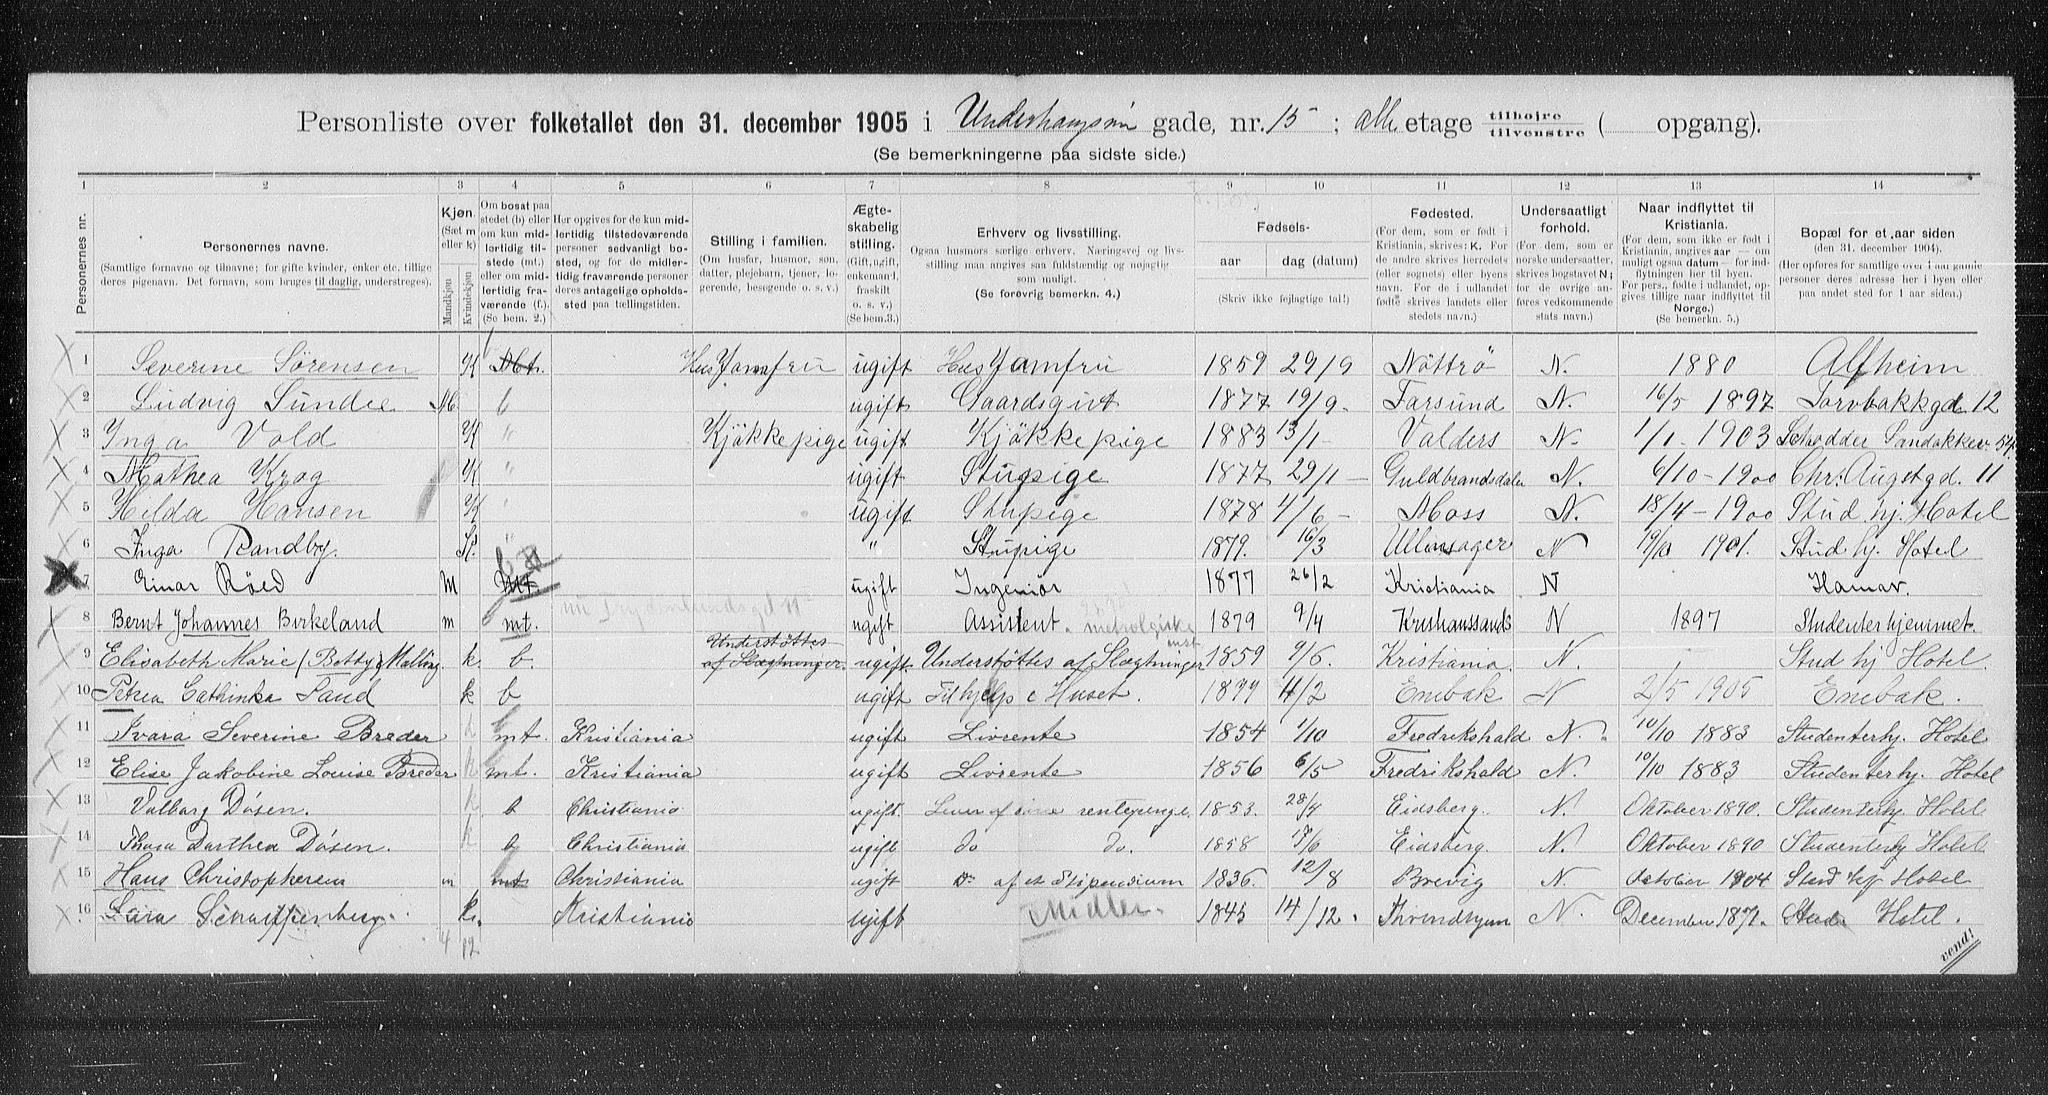 Personliste over folketallet den 31. december 1905 i Underhaugsvn gade, nr. 15; alle etage tilhøjre tilvenstre ( opgang).
(Se bemerkningerne paa sidste side.)
1 2 3 4 5 6 7 8 9 10 11 12 13 14
Personernes nr.
Personernes navne.
(Samtlige fornavne og tilnavne; for gifte kvinder, enker etc. tillige deres pigenavn. Det fornavn, som bruges til daglig, understreges).
Kjøn. (Sæt m eller k.) Mandkjøn Kvindekjøn
Om bosat paa stedet (b) eller om kun midlertidig tilstede (mt.) eller om midlertidig fraværende (f.). (Se bem. 2.)
Her opgives for de kun midlertidig tilstedeværende personer sedvanligt bosted, og for de midlertidig fraværende personer deres antagelige opholdssted paa tællingstiden.
Stilling i familien.
(Om husfar, husmor, søn, datter, plejebarn, tjener, logerende, besøgende o. s. v.)
Ægteskabelig stilling. (Gift, ugift, enkemand, fraskilt o. s. v.) (Se bem. 3.)
Erhverv og livsstilling.
Ogsaa husmors særlige erhverv. Næringsvej og livsstilling maa angives saa fuldstændig og nøjagtig som muligt.
(Se forøvrig bemerkn. 4.)
Fødsels-
aar dag (datum)
(Skriv ikke fejlagtige tal!)
Fødested.
(For dem, som er født i Kristiania, skrives: K. For de andre skrives herredets (eller sognets) eller byens navn. For de i udlandet fødte skrives landets eller stedets navn.)
Undersaatligt forhold.
(For norske undersaatter, skrives bogstavet N; for de øvrige anføres vedkommende stats navn.)
Naar indflyttet til Kristiania.
(For dem, som ikke er født i Kristiania, angives aar — om muligt ogsaa datum — for indflytningen her til byen. For pers., fødte i udlandet, opgives tillige naar indflyttet til Norge.) (Se bemerkn. 5.)
Bopæl for et aar siden
(den 31. december 1904).
(Her opføres for samtlige over 1 aar gamle personer deres adresse her i byen eller paa andet sted for 1 aar siden.)
1 Severine Sørensen K Mt. Husjomfru ugift Husjomfru 1859 29/9 Nöttrö N. 1880 Alfheim
2 Ludvig Sundee M. b ugift Gaardsgut 1877 19/9 Farsund N. 16/5 1897 Torvbakkgd. 12
3 Inga Vold K " Kjökkepige ugift Kjökkepige 1883 13/1 Valders N. 1/1 - 1903 Sandakkev. 54
4 Mathea Krog K " ugift Stupige 1877 29/1 Guldbrandsdalen N. 6/10 - 1900 Chr: Augstgd. 11
5 Hilda Hansen K " ugift Stupige 1878 4/6 Moss N. 18/4 - 1900 Stud hj. Hotel
6 Inga Randby. K. " " Stupige 1879. 16/3 Ullensager N 19/10 1901. Stud hj. Hotel
7 Einar Röed M mt ugift Ingeniör 1877 26/2 Kristiania N Hamar.
8 Bernt Johannes Birkeland m mt. ugift Assistent metrolgiske inst 1879 9/4 Kristianssands N 1897 Studenterhjemmet.
9 Elisabeth Marie (Betty) Malling k. b. Understöttes af Slægtninger. ugift Understöttes af Slægtninger 1859 9/6. Kristiania. N. Stud hj Hotel
10 Petra Cathinka Sand k b ugift Tilhjelp i Huset. 1877 4/2 Enebak N 2/5 1905 Enebak.
11 Ivara Severine Breder k mt. Kristiania ugift Livrente 1854 1/10 Fredrikshald N. 10/10 1883 Studenterhj. Hotel
12 Elise Jakobine Louise Breder k mt. Kristiania ugift Livrente 1856 6/5 Fredrikshald N. 10/10 1883 Studenterhj. Hotel
13 Valborg Dösen. k b Christiania ugift. Lever af sine rentepenge. 1853. 28/4 Eidsberg. N. Oktober 1890. Studenterhj Hotel
14 Thora Dorthea Dösen. k b Christiania ugift do do. 1858 17/6 Eidsberg. N. Oktober 1890 Studenterhj Hotel
15 Hans Christophersen m mt Christiania ugift D: af et Stipendium 1836. 12/8 Brevig N. October 1904 Stud hj Hotel
16 Sara Scharffenberg. k. Kristiania ugift Midler. 1845 14/12. Throndhjem N. December 1871. Stud Hotel.
4 12
vend!